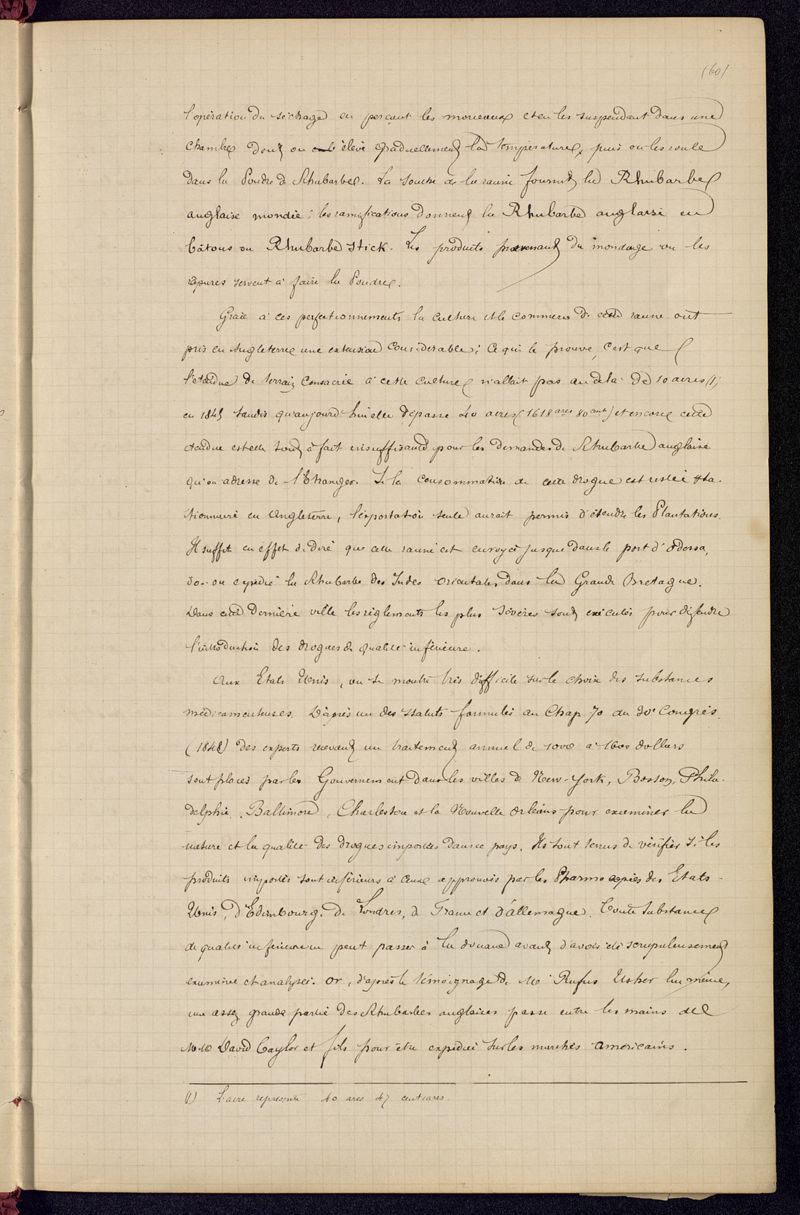 (60)
l'opération du séchage en perçant les morceaux et en les suspendant dans une
chambre dont on élève graduellement la température, puis on les roule
dans la Poudre de Rhubarbe. La souche de la racine fournit la Rhubarbe
anglaise mondée ; les ramifications donnent la Rhubarbe anglaise en
bâtons ou Rhubarbe stick. Les produits provenant du mondage ou les
épures servent à faire la Poudre.
Grâce à ces perfectionnements la culture et le commerce de cette racine ont
pris en Angleterre une extension considérable ; Ce qui le prouve, c'est que
l'étendue de terrain consacrée à cette culture n'allait pas au delà de 10 acres (1)
en 1845 tandis qu'aujourd'hui elle dépasse 40 acres (1618 ares 80 cent) et encore cette
étendue est elle tout à fait insuffisante pour les demandes de Rhubarbe anglaise
qu'on adresse de l'Etranger. Si la consommation de cette drogue est restée sta-
tionnaire en Angleterre, l'exportation seule aurait permis d'étendre les Plantations.
Il suffit en effet de dire que cette racine est envoyée jusque dans le port d'Odessa,
d'où on expédie la Rhubarbe des Indes orientales dans la Grande Bretagne.
Dans cette dernière ville les règlements les plus sévères sont exécutés pour défendre
l'introduction des drogues de qualité inférieure.
Aux Etats Unis, on se montre très difficile sur le choix des substances
médicamenteuses. D'après un des statuts formulés au Chap 70 du 30e Congrès
(1848) des experts recevant un traitement annuel de 1000 à 1600 dollars
sont placés par le Gouvernement dans les villes de New-York, Boston, Phila-
delphie, Baltimore, Charleston et la Nouvelle Orléans pour examiner la
nature et la qualité des drogues importées dans ce pays. Ils sont tenus de vérifier si les
produits importés sont inférieurs à ceux approuvés par les Pharmacopées des Etats-
Unis, d'Edimbourg, de Londres, de France et d'allemagne. Toute substance
de qualité inférieure ne peut passer à la douane avant d'avoir été scrupuleusement
examinée et analysée. Or, d'après le témoignage de Mr Rufus Usher lui même,
une assez grande partie des Rhubarbes anglaises passe entre les mains de
MM David Taylor et fils pour être expédiée sur les marchés américains.
(1) L'acre représente 40 ares 47 centiares